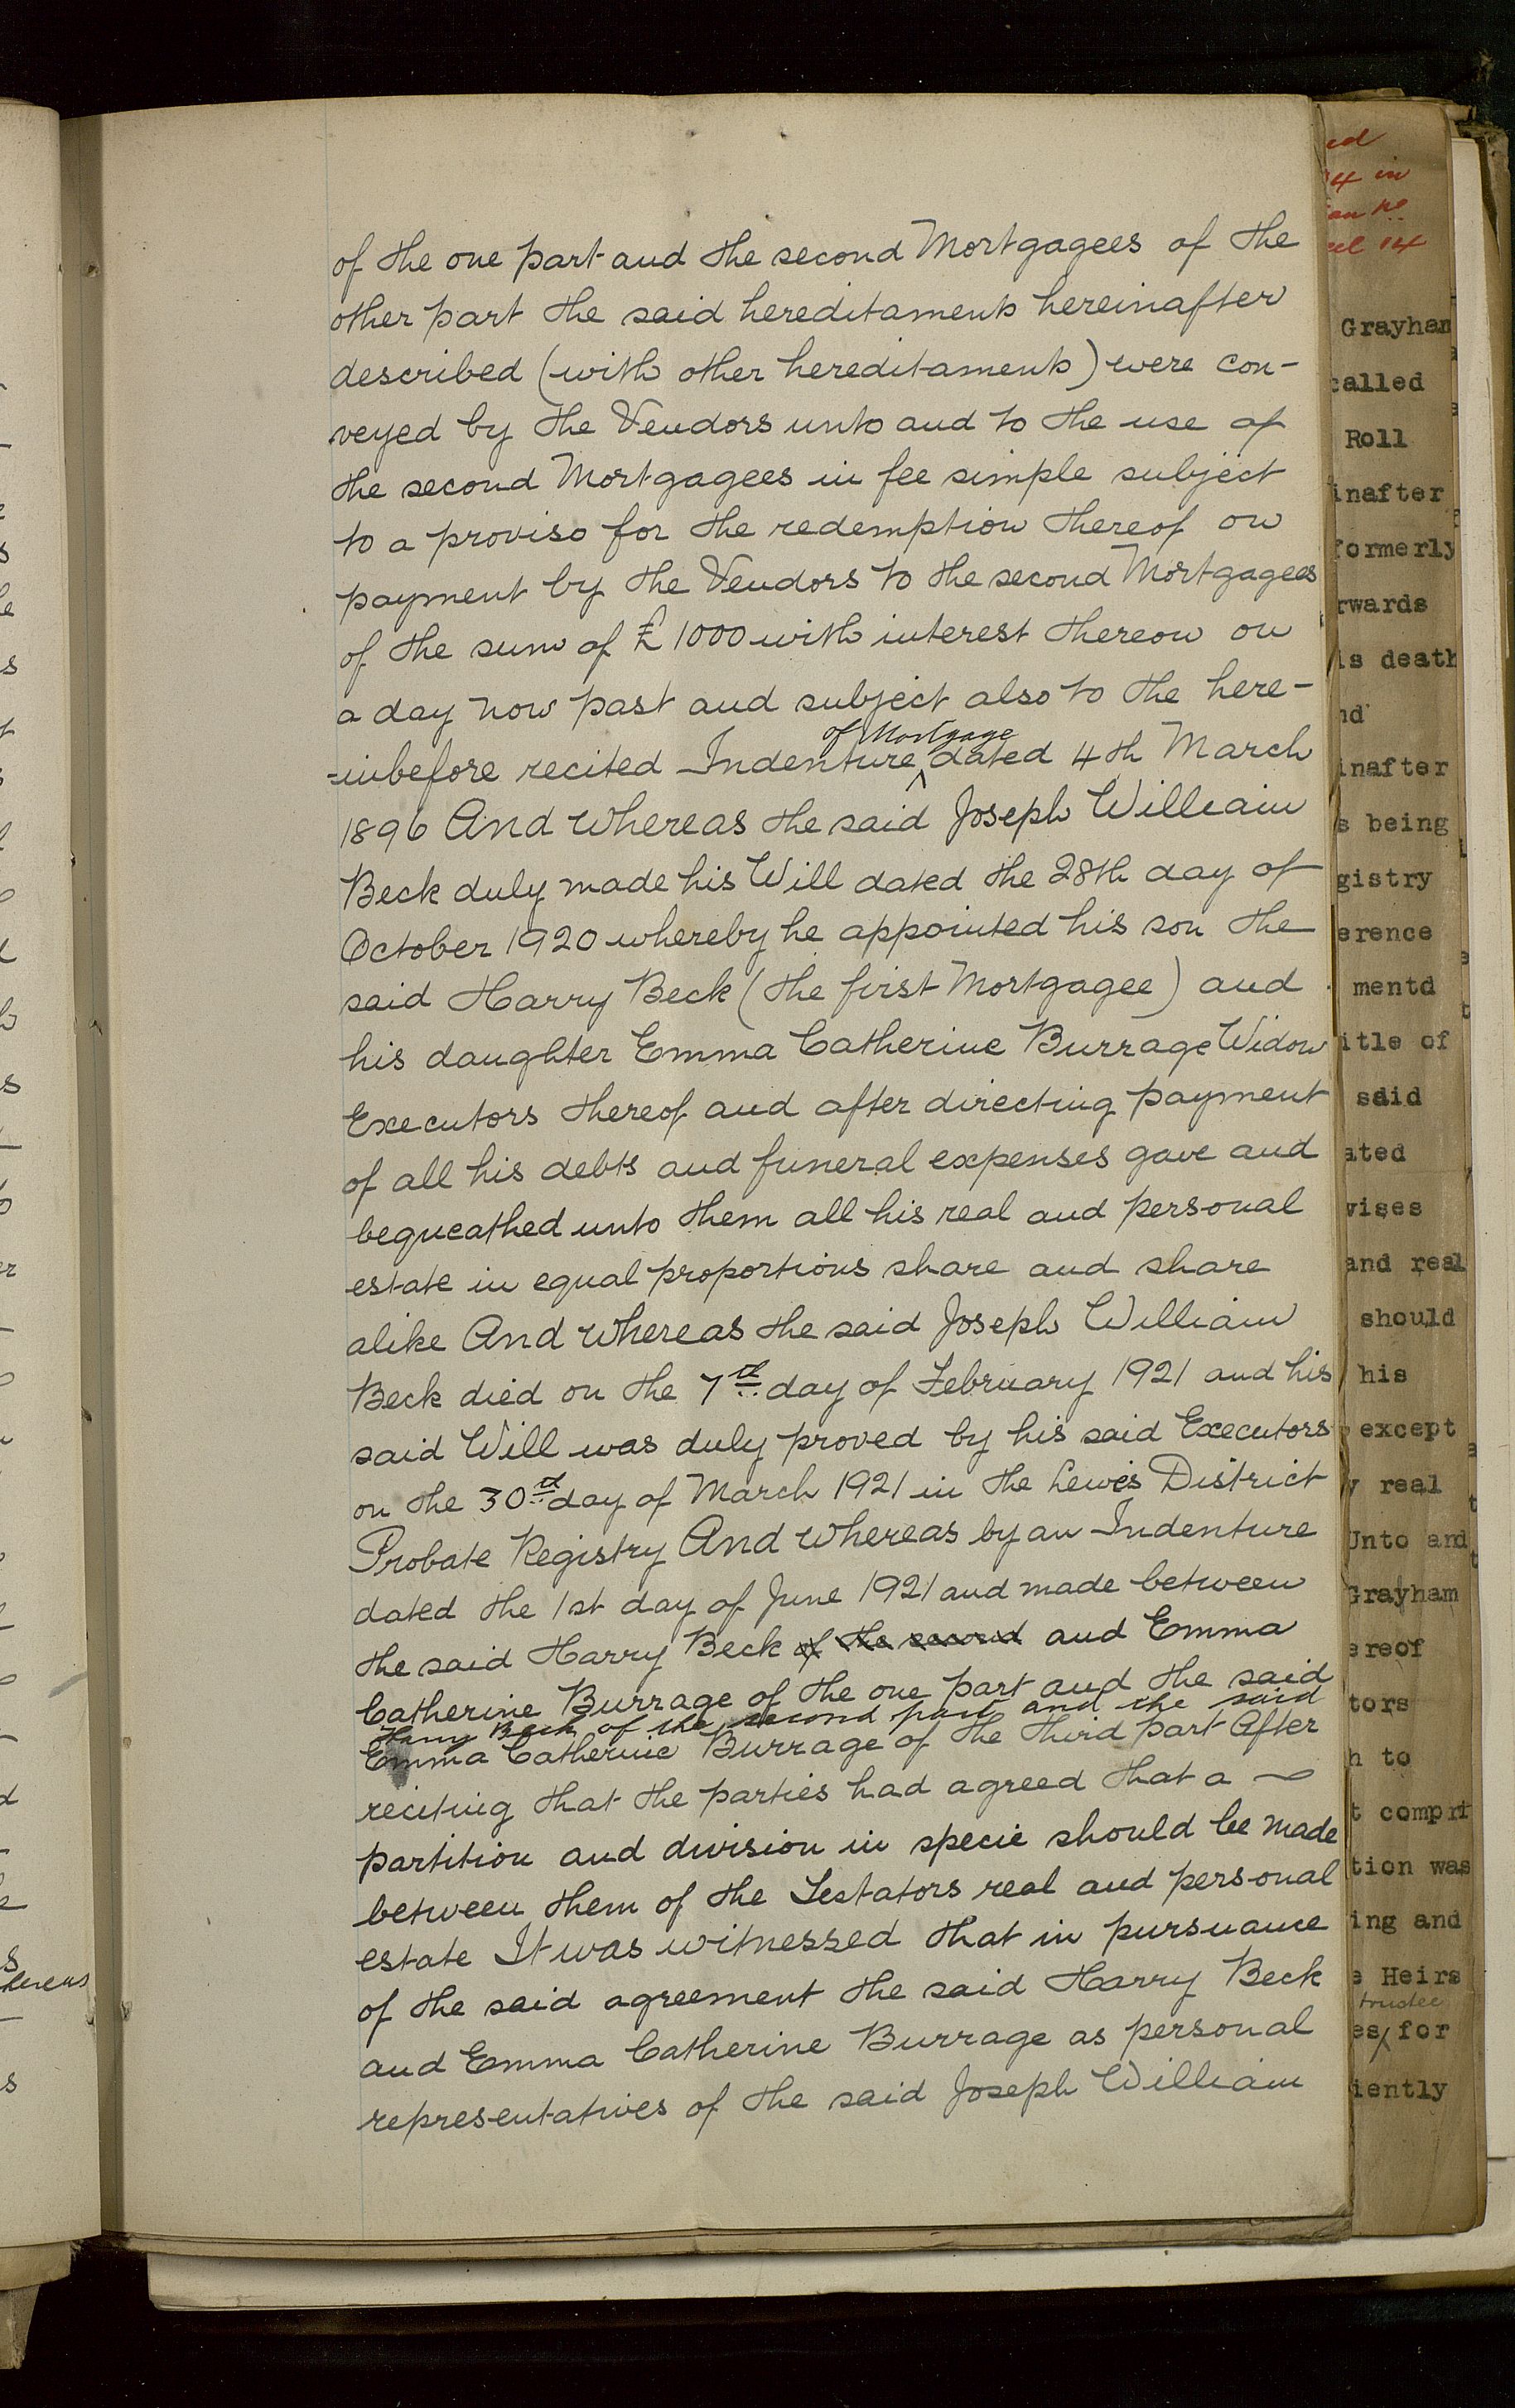 of the one part and the second Mortgagees of the
other part the said hereditaments hereinafter
described (with other hereditaments) were con-
veyed by the Vendors unto and to the use of
the second Mortgagees in fee simple subject
to a proviso for the redemption thereof on
payment by the Vendors to the second Mortgagees
of the sum of £1000 with interest thereon on
a day now past and subject also to the here-
of Mortgage
-inbefore recited Indenture ^ dated 4th March
1896 And whereas the said Joseph William
Beck duly made his Will dated the 28th day of
October 1920 whereby he appointed his son the
said Harry Beck (the first Mortgagee) and
his daughter Emma Catherine Burrage Widow
Executors thereof and after directing payment
of all his debts and funeral expenses gave and
bequeathed unto them all his real and personal
estate in equal proportions share and share
alike And whereas the said Joseph William
Beck died on the 7th day of February 1921 and his
said Will was duly proved by his said Executors
on the 30th day of March 1921 in the Lewes District
Probate Registry And whereas by an Indenture
dated the 1st day of June 1921 and made between
the said Harry Beck of the second and Emma
Catherine Burrage of the one part and the said
Harry Beck of the second part and the said
Emma Catherine Burrage of the third part After
reciting that the parties had agreed that a
partition and division in specie should be made
between them of the Testators real and personal
estate It was witnessed that in pursuance
of the said agreement the said Harry Beck
and Emma Catherine Burrage as personal
representatives of the said Joseph William
ed
14 in
an No
cel 14
Grayham
called
Roll
inafter
formerly
rwards
is death
nd
inafter
s being
gistry
erence
mentd
itle of
said
ated
vises
and real
should
his
except
y real
Unto and
Grayham
ereof
tors
h to
t compri
tion was
ing and
e Heirs
trustee
es ^ for
iently